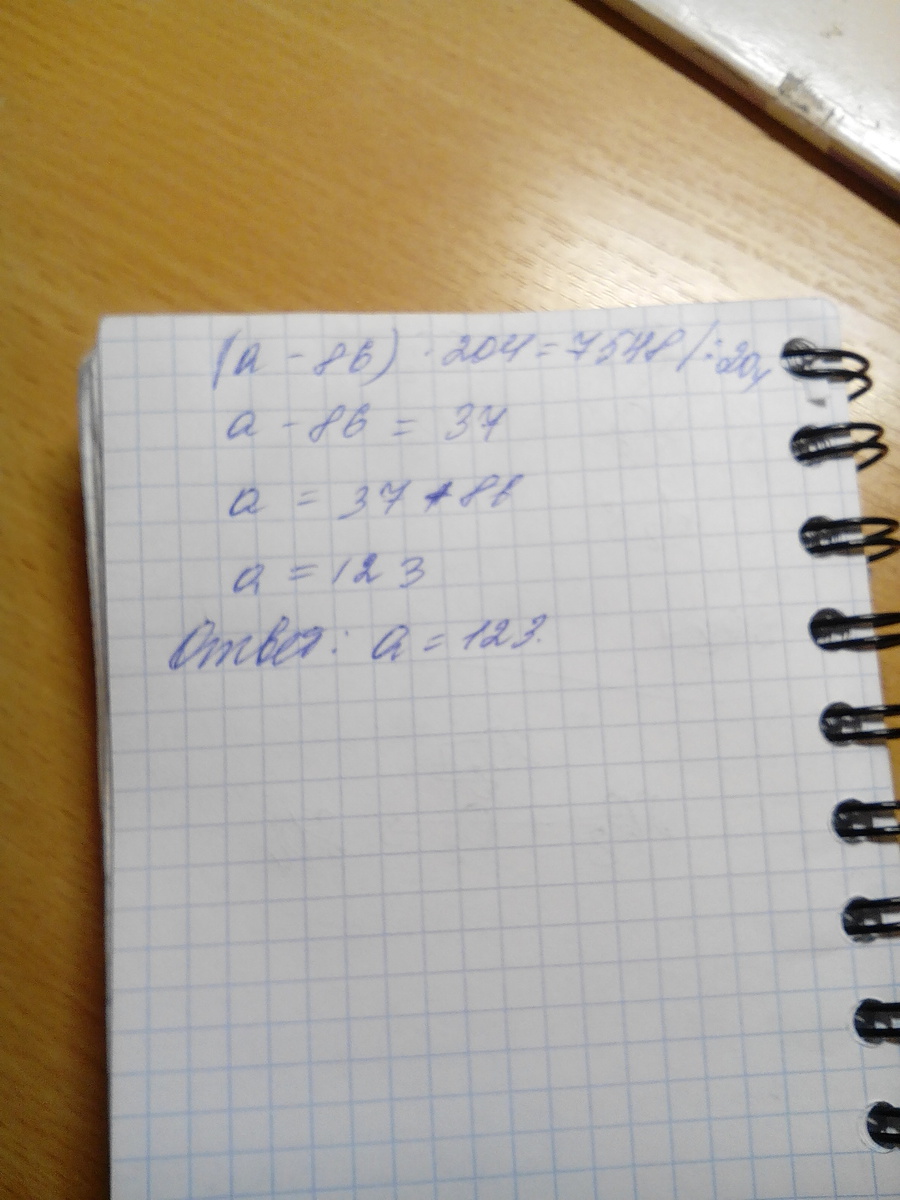 (a - 86) · 204 = 7548 / : 204
a - 86 = 37
a = 37 + 86
a = 123
Ответ: a = 123.